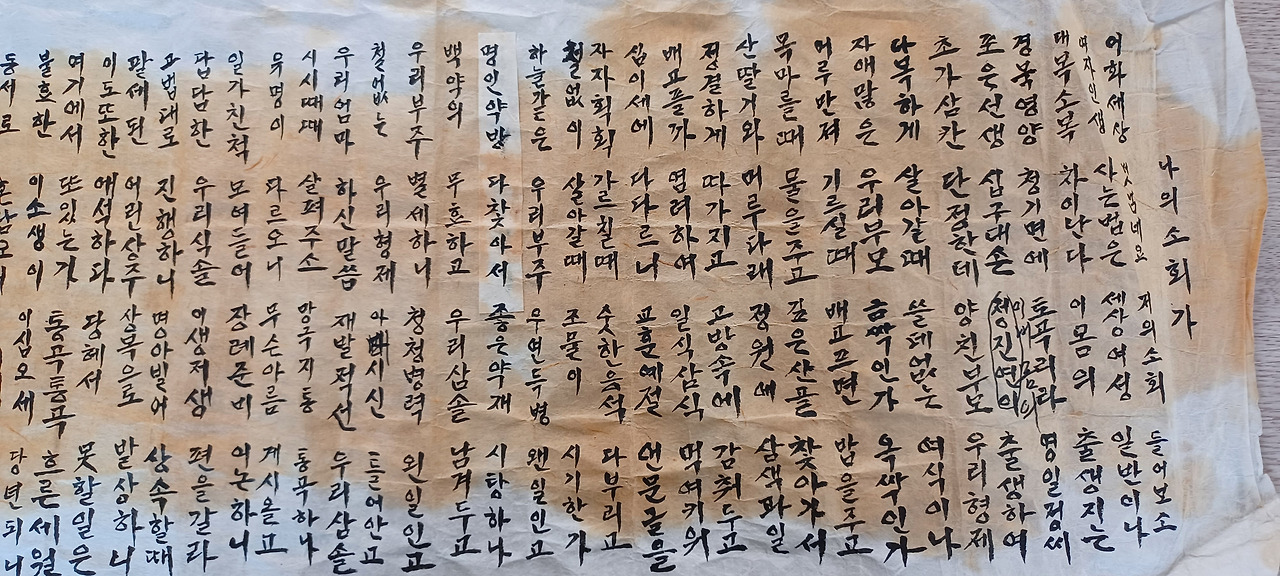 나의 소회가
어화세상 벗님네요 저의소회 들어보소
여자인생 사는법은 세상여성 일반이나
대목소복 차이난다 이몸의 출생지는
경북영양 청기면에 토곡리라 명일정씨
조은선생 십구대손 정진연의 출생하여
초가삼칸 단정한데 양친부모 우리형제
다복하게 살아갈때 쓸데없는 여식이나
자애많은 우리부모 금싹인가 옥싹인가
머루만져 기르실때 배고프면 밥을주고
목마를때 물을주고 깊은산골 찾아가서
산딸기와 머루다래 정원에 삼색과일
정결하게 따가지고 고방속에 감취두고
배고플까 염려하여 일식삼식 먹여키워
십이세에 다다르니 교훈예절 언문글을
자자획획 가르칠때 숫한음석 다부리고
철없이 살아갈때 조물이 시기한가
하늘같은 우리부주 우연득병 왠일인고
명인약방 다찾아서 좋은약재 시탕하나
백약의 무효하고 우리삼솔 남겨두고
우리부주 별세하니 청청병력 왼일인고
철없는 우리형제 시신 끌어안고
우리엄마 하신말씀 재발적선 우리삼솔
시시때때 살펴주소 망극지통 통곡하나
유명이 다르오니 무슨아름 계시올고
일가친척 모여들어 장례준비 의논하니
답답한 우리식솔 이생저생 편을갈라
고법대로 진행하니 명아빌어 상속할때
팔세된 어린상주 상목으로 발상하니
이도또한 애석하다 당혜서 못할일은
여기에서 또있는가 통곡통곡 흐른세월
불효한 이소생이 이십오세 당년되니